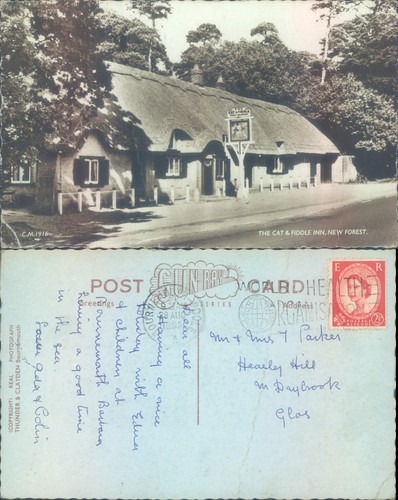 C.M.1916
THE CAT & FIDDLE INN, NEW FOREST.
POST CARD
SUNRAY
SERIES
Greetings
Address
E R
2½D
(COPYRIGHT) REAL PHOTOGRAPH
THUNDER & CLAYDEN Bournemouth
Dear all
Having a nice
holiday with Edna
& children at
Bournemouth Barbara
having a good time
in the sea.
Love Ada & Colin
Mr & Mrs T Parker
Heavley Hill
Nr Drybrook
Glos